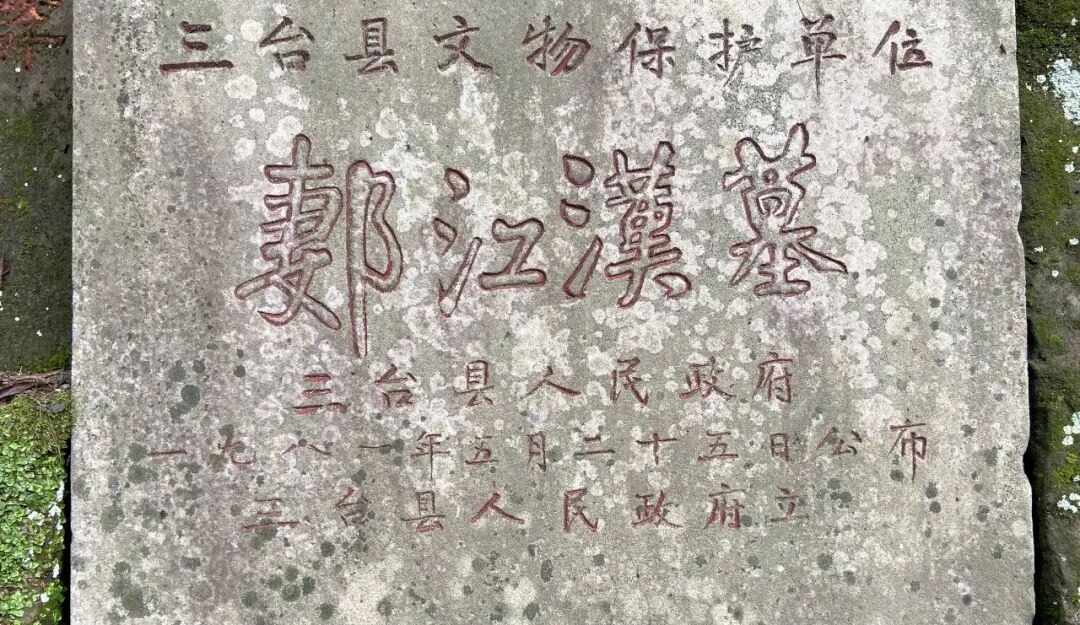 三台县文物保护单位
郪江漢墓
三台县人民政府
一九八一年五月二十五日公布
三台县人民政府立